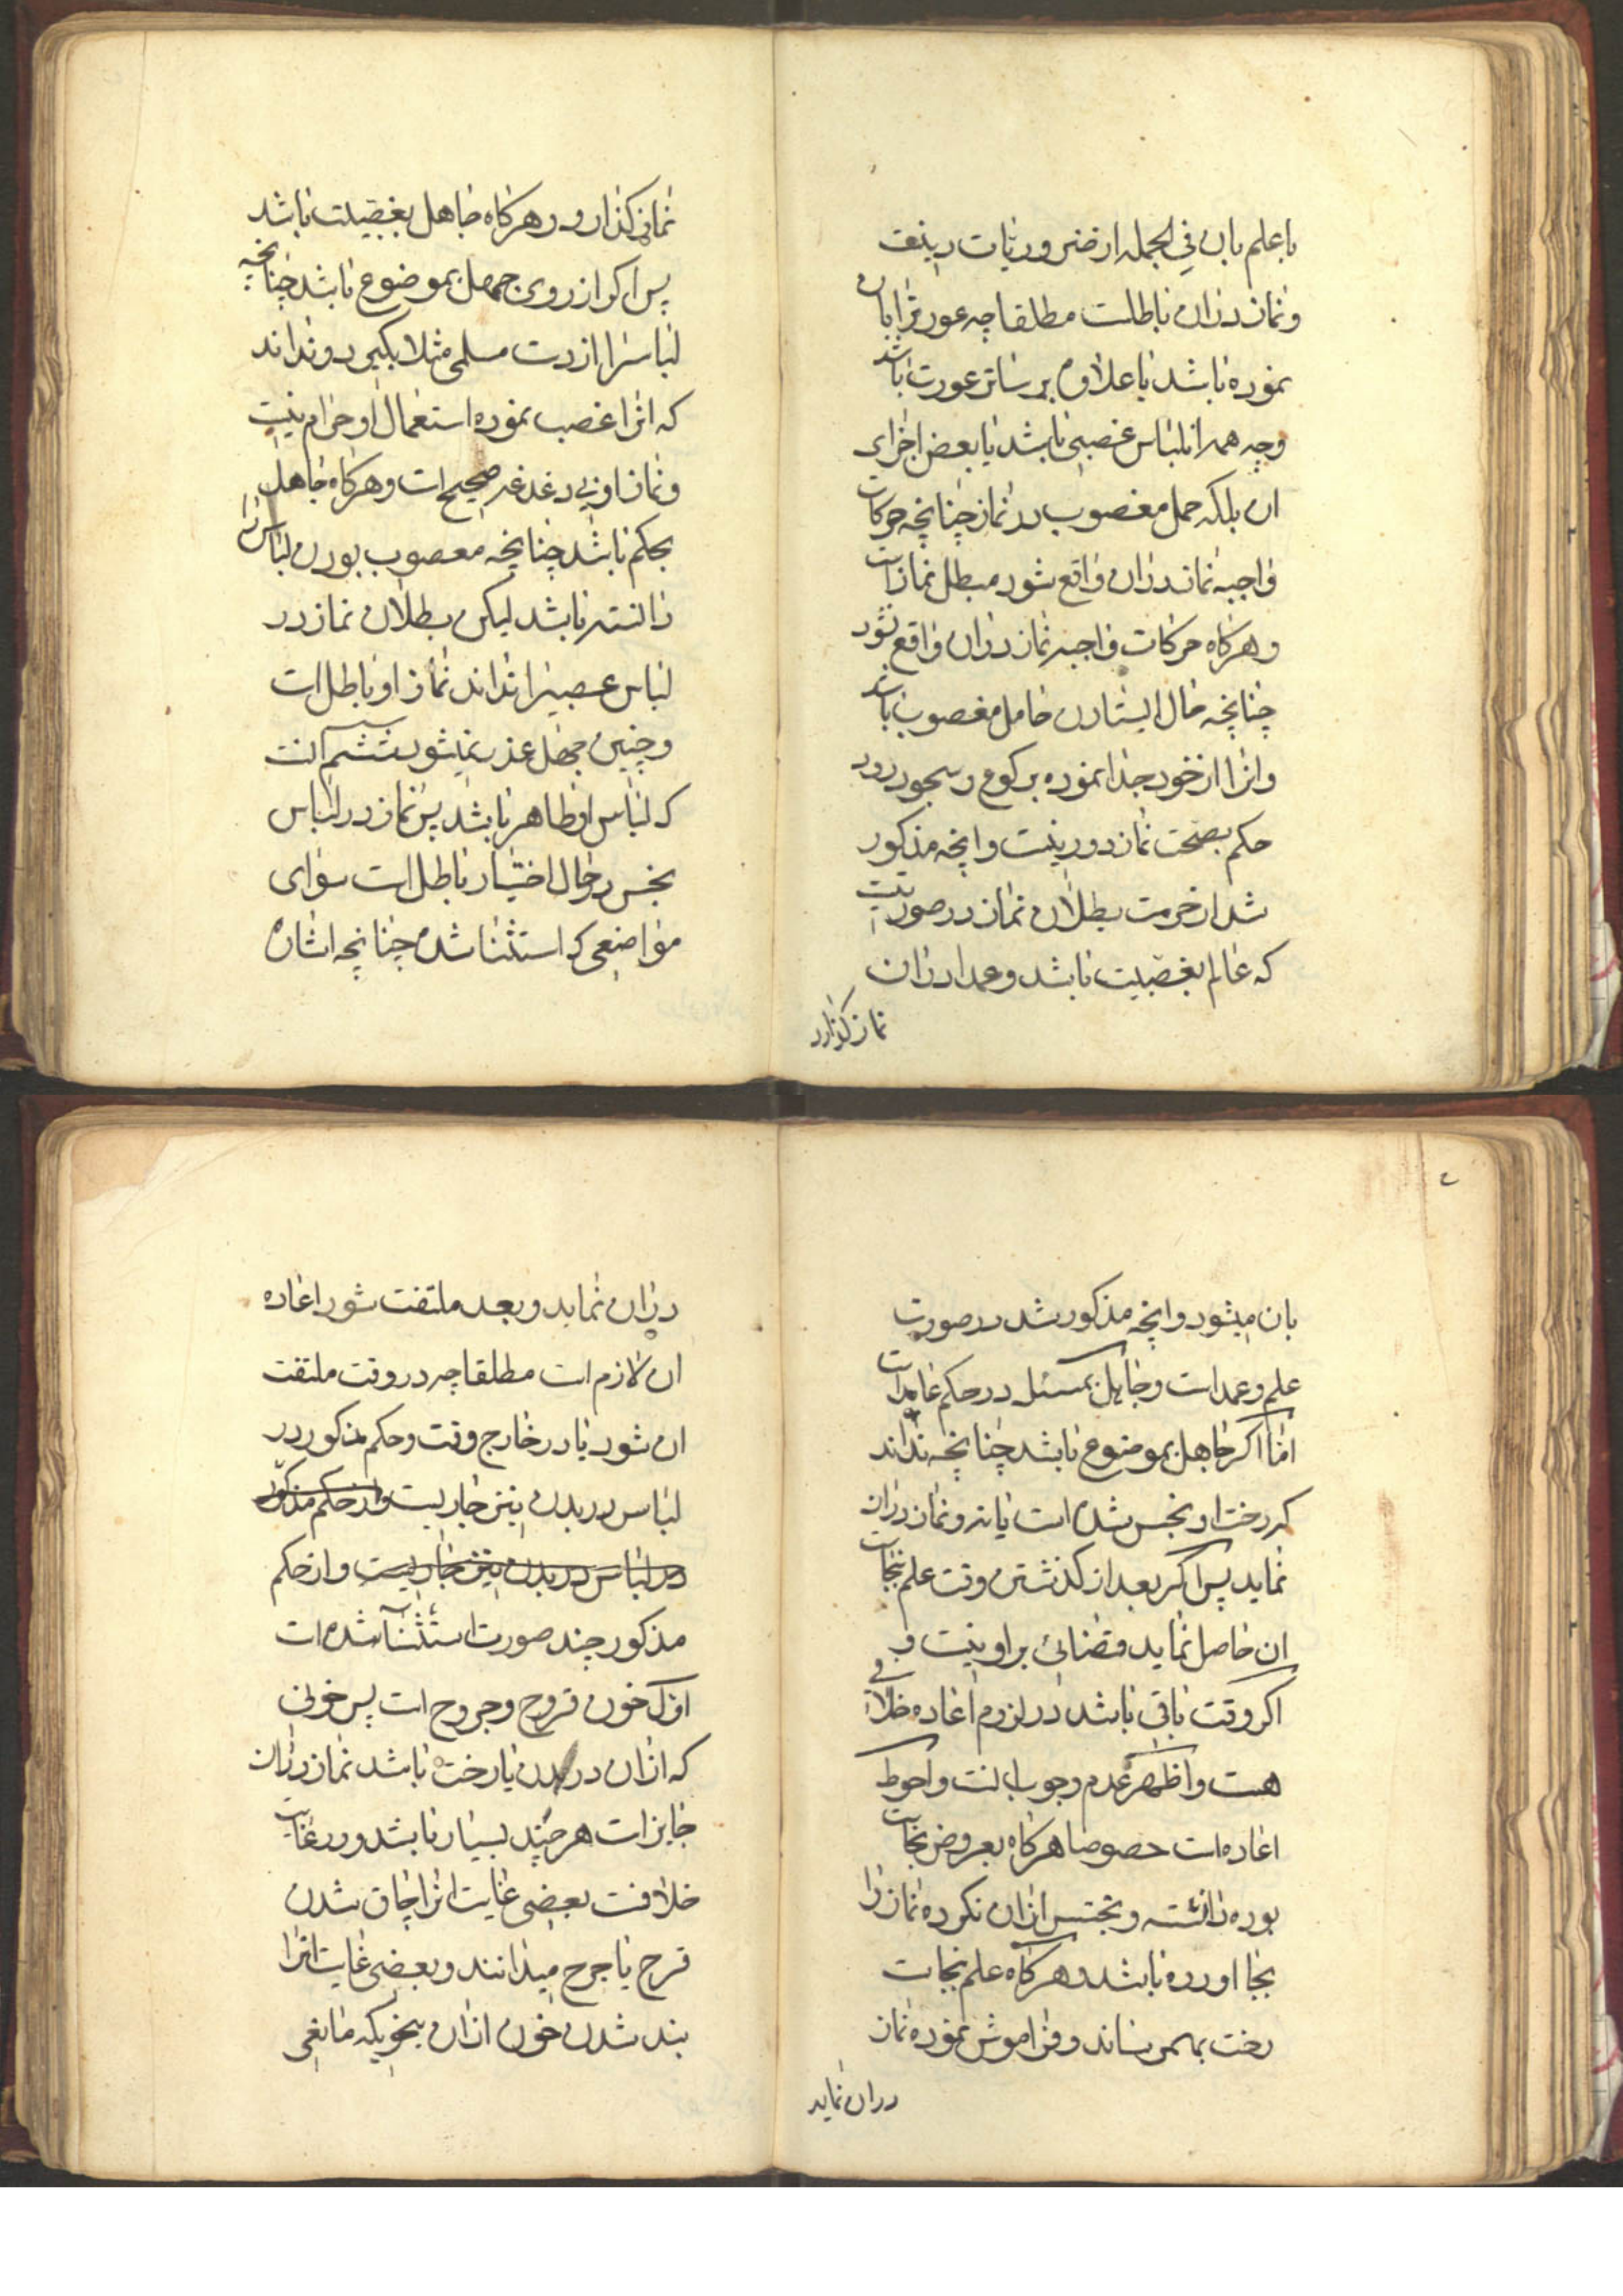 با علم بان في الجمله از ضروریات دینت
و نماز دران باطلست مطلقا چه عورترا بان
نموده باشد یا علاوه بر ساتر عورت باشد
وچه همه ان لباس غصبی باشد یا بعض اجزای
ان بلکه حمل مغصوب در نماز چنانچه حرکات
واجبه نماز دران واقع شود مبطل نماز است
و هرکاه حرکات واجبه نماز دران واقع نشود
چنانچه حال ایستادن حامل مغصوب باشد
و انرا از خود جدا نموده برکوع و سجود رود
حکم بصحت نماز دور نیست و انچه مذکور
شد از حرمت و بطلان نماز در صورتیست
که عالم بغصبیت باشد و عمدا دران
نماز کذارد
نماز کذارد و هرکاه جاهل بغصبیت باشد
پس اکر از روی جهل بموضوع باشد چنانچه
لباسرا از دست مسلمی مثلا بکیرد و نداند
که انرا غصب نموده استعمال او حرام نیست
و نماز او بی دغدغه صحیح است و هرکاه جاهل
بحکم باشد چنانچه مغصوب بودن لباس را
دانسته باشد لیکن بطلان نماز در
لباس غصبیرا نداند نماز او باطل است
و چنین جهل عذر نمیشود ششم آنست
که لباس او طاهر باشد پس نماز در لباس
نجس در حال اختیار باطل است سوای
مواضعی که استثنا شده چنانچه اشاره
بان میشود و انچه مذکور شد در صورت
علم و عمد است و جاهل بمسئله در حکم عامد است
اما اکر جاهل بموضوع باشد چنانچه نداند
که رخت او نجس شده است یا نه و نماز دران
نماید پس اکر بعد از کذشتن وقت علم بنجاست
ان حاصل نماید قضائی بر او نیست و
اکر وقت باقی باشد در لزوم اعاده خلافی
هست و اظهر عدم وجوب انست و احوط
اعاده است خصوصا هرکاه بعروض نجاست
بوده دانسته و تجسس ازان نکرده نماز را
بجا اورده باشد و هرکاه علم بنجاست
رخت بهم رساند و فراموش نموده نماز
دران نماید
دران نماید و بعد ملتفت شود اعاده
ان لازم است مطلقا چه در وقت ملتفت
ان شود یا در خارج وقت و حکم مذکور در
لباس در بدن نیز جاریست و از حکم مذکور
در لباس در بدن نیز جاریست و از حکم
مذکور چند صورت استثنا شده است
اول خون قروح و جروح است پس خونی
که ازان در بدن یا رخت باشد نماز دران
جایز است هر چند بسیار باشد و در غایت
خلافست بعضی غایت انرا چاق شدن
قرح یا جرح میدانند و بعضی غایت انرا
بند شدن خون ازان بنحویکه مانعی